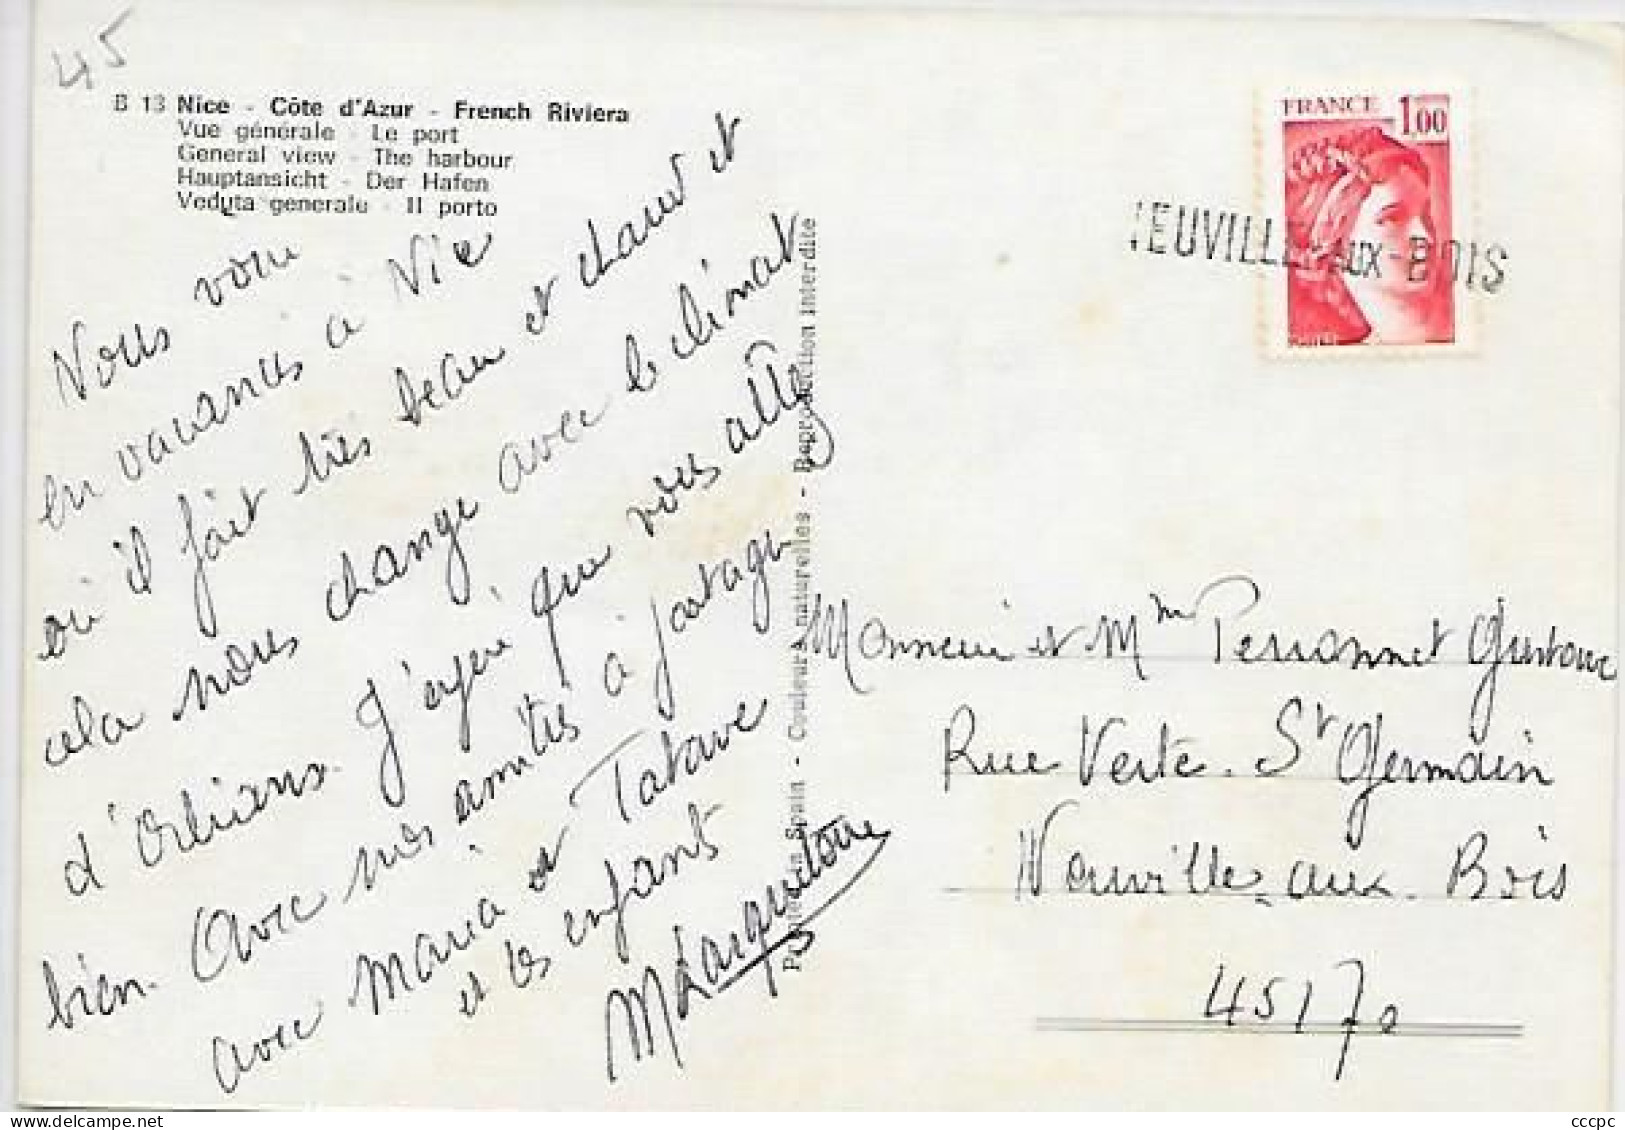 45
B 13 Nice - Côte d'Azur - French Riviera
Vue générale - Le port
General view - The harbour
Hauptansicht - Der Hafen
Veduta generale - Il porto
Nous voici
en vacances à Nice
où il fait très beau et chaud et
cela nous change avec le climat
d'Orléans. J'espère que vous allez
bien. Avec nos amitiés à partager
avec Maria et Tatave
et les enfants
M Larquetoux
Couleurs naturelles - Reproduction interdite
FRANCE 1,00
NEUVILLE-AUX-BOIS
Monsieur et Mme Perronnet Gustave
Rue Verte. St Germain
Neuville aux Bois
45170
cccpc